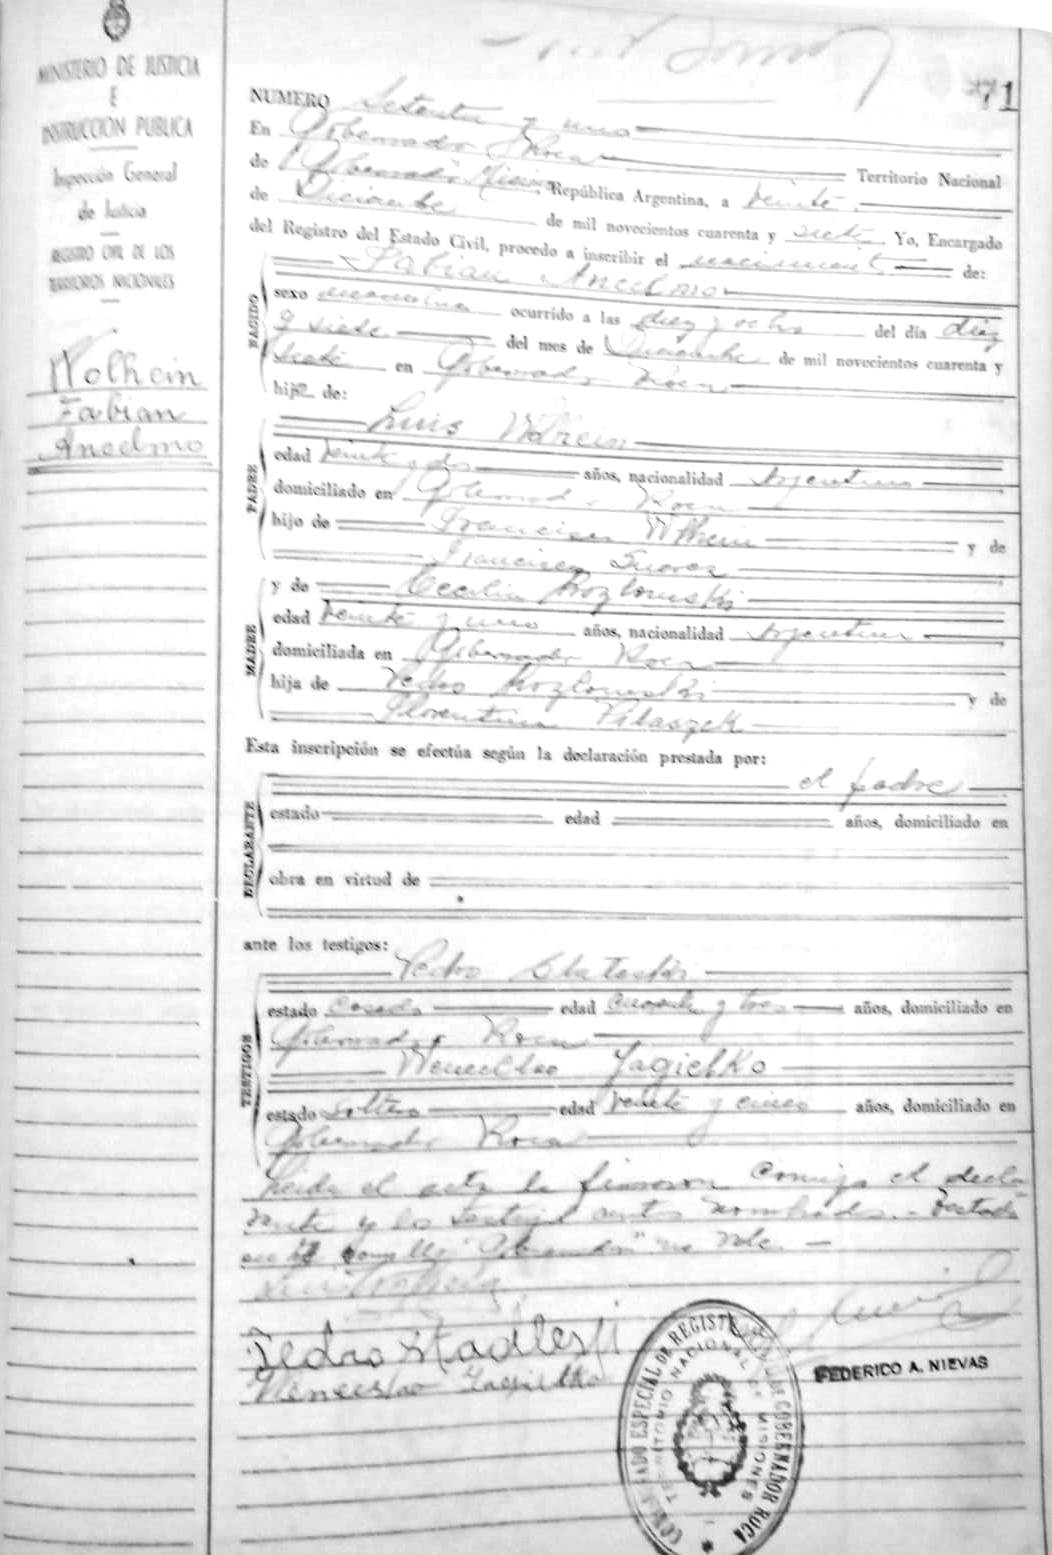 71
MINISTERIO DE JUSTICIA
E
INSTRUCCIÓN PUBLICA
Inspección General
de Justicia
REGISTRO CIVIL DE LOS
TERRITORIOS NACIONALES
Wolhein
Fabian
Anselmo
NUMERO Setenta y uno
En Gobernador Roca Territorio Nacional
de "Gobernador" Misiones República Argentina, a veinte
de Diciembre de mil novecientos cuarenta y siete Yo, Encargado
del Registro del Estado Civil, procedo a inscribir el nacimiento de:
NACIDO
Fabian Anselmo
sexo masculino ocurrido a las diez y ocho del día diez
y siete del mes de Diciembre de mil novecientos cuarenta y
siete en Gobernador Roca
hijo de:
PADRE
Luis Wolhein
edad veinte y dos años, nacionalidad Argentina
domiciliado en Gobernador Roca
hijo de Francisco Wolhein y de
Francisca Suarez
MADRE
y de Cecilia Kozlowski
edad veinte y uno años, nacionalidad Argentina
domiciliada en Gobernador Roca
hija de Pedro Kozlowski y de
Florentina
Esta inscripción se efectúa según la declaración prestada por:
DECLARANTE
el padre
estado edad años, domiciliado en
obra en virtud de
ante los testigos:
TESTIGOS
Pedro
estado Casado edad cuarenta y tres años, domiciliado en
Gobernador Roca
Wenceslao Jagielko
estado soltero edad veinte y cinco años, domiciliado en
Gobernador Roca
Leida el acta la firmaron conmigo el decla
rante y los testigos antes nombrados.- Testado
"Gobernador" no vale.
Pedro
Wenceslao Jagielko
FEDERICO A. NIEVAS
GOBERNADOR ROCA
TERRITORIO NACIONAL DE MISIONES